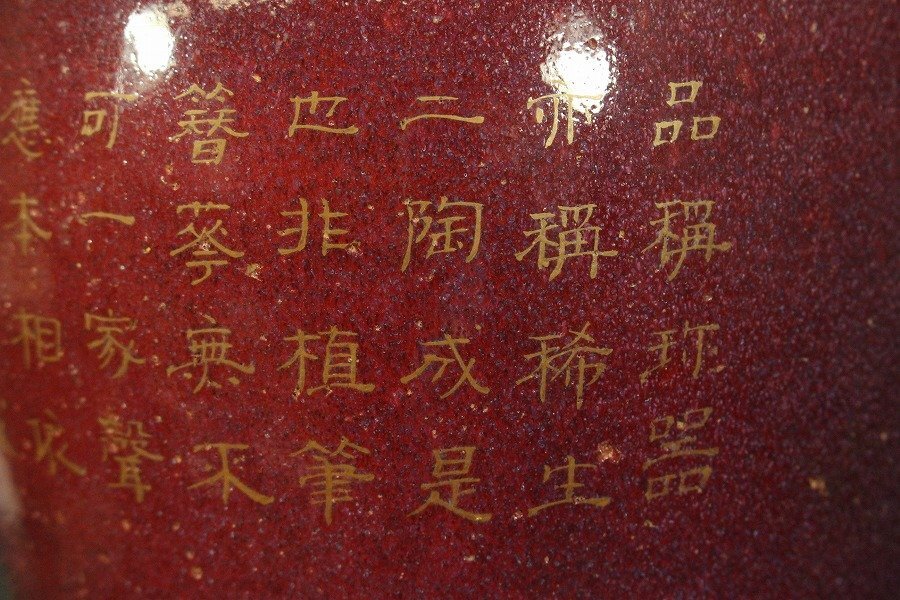 品稱珎器
亦稱稀生
二陶成是
也非植筆
簪無不
可一家聲
應本相求